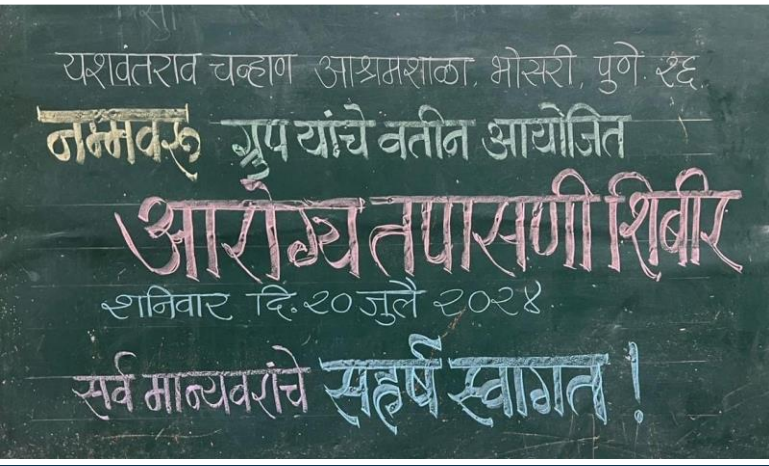 यशवंतराव चव्हाण आश्रमशाळा, भोसरी, पुणे. २६.
नम्मवरू ग्रुप यांचे वतीन आयोजित
आरोग्य तपासणी शिबीर
शनिवार दि. २० जुलै २०२४
सर्व मान्यवरांचे सहर्ष स्वागत !